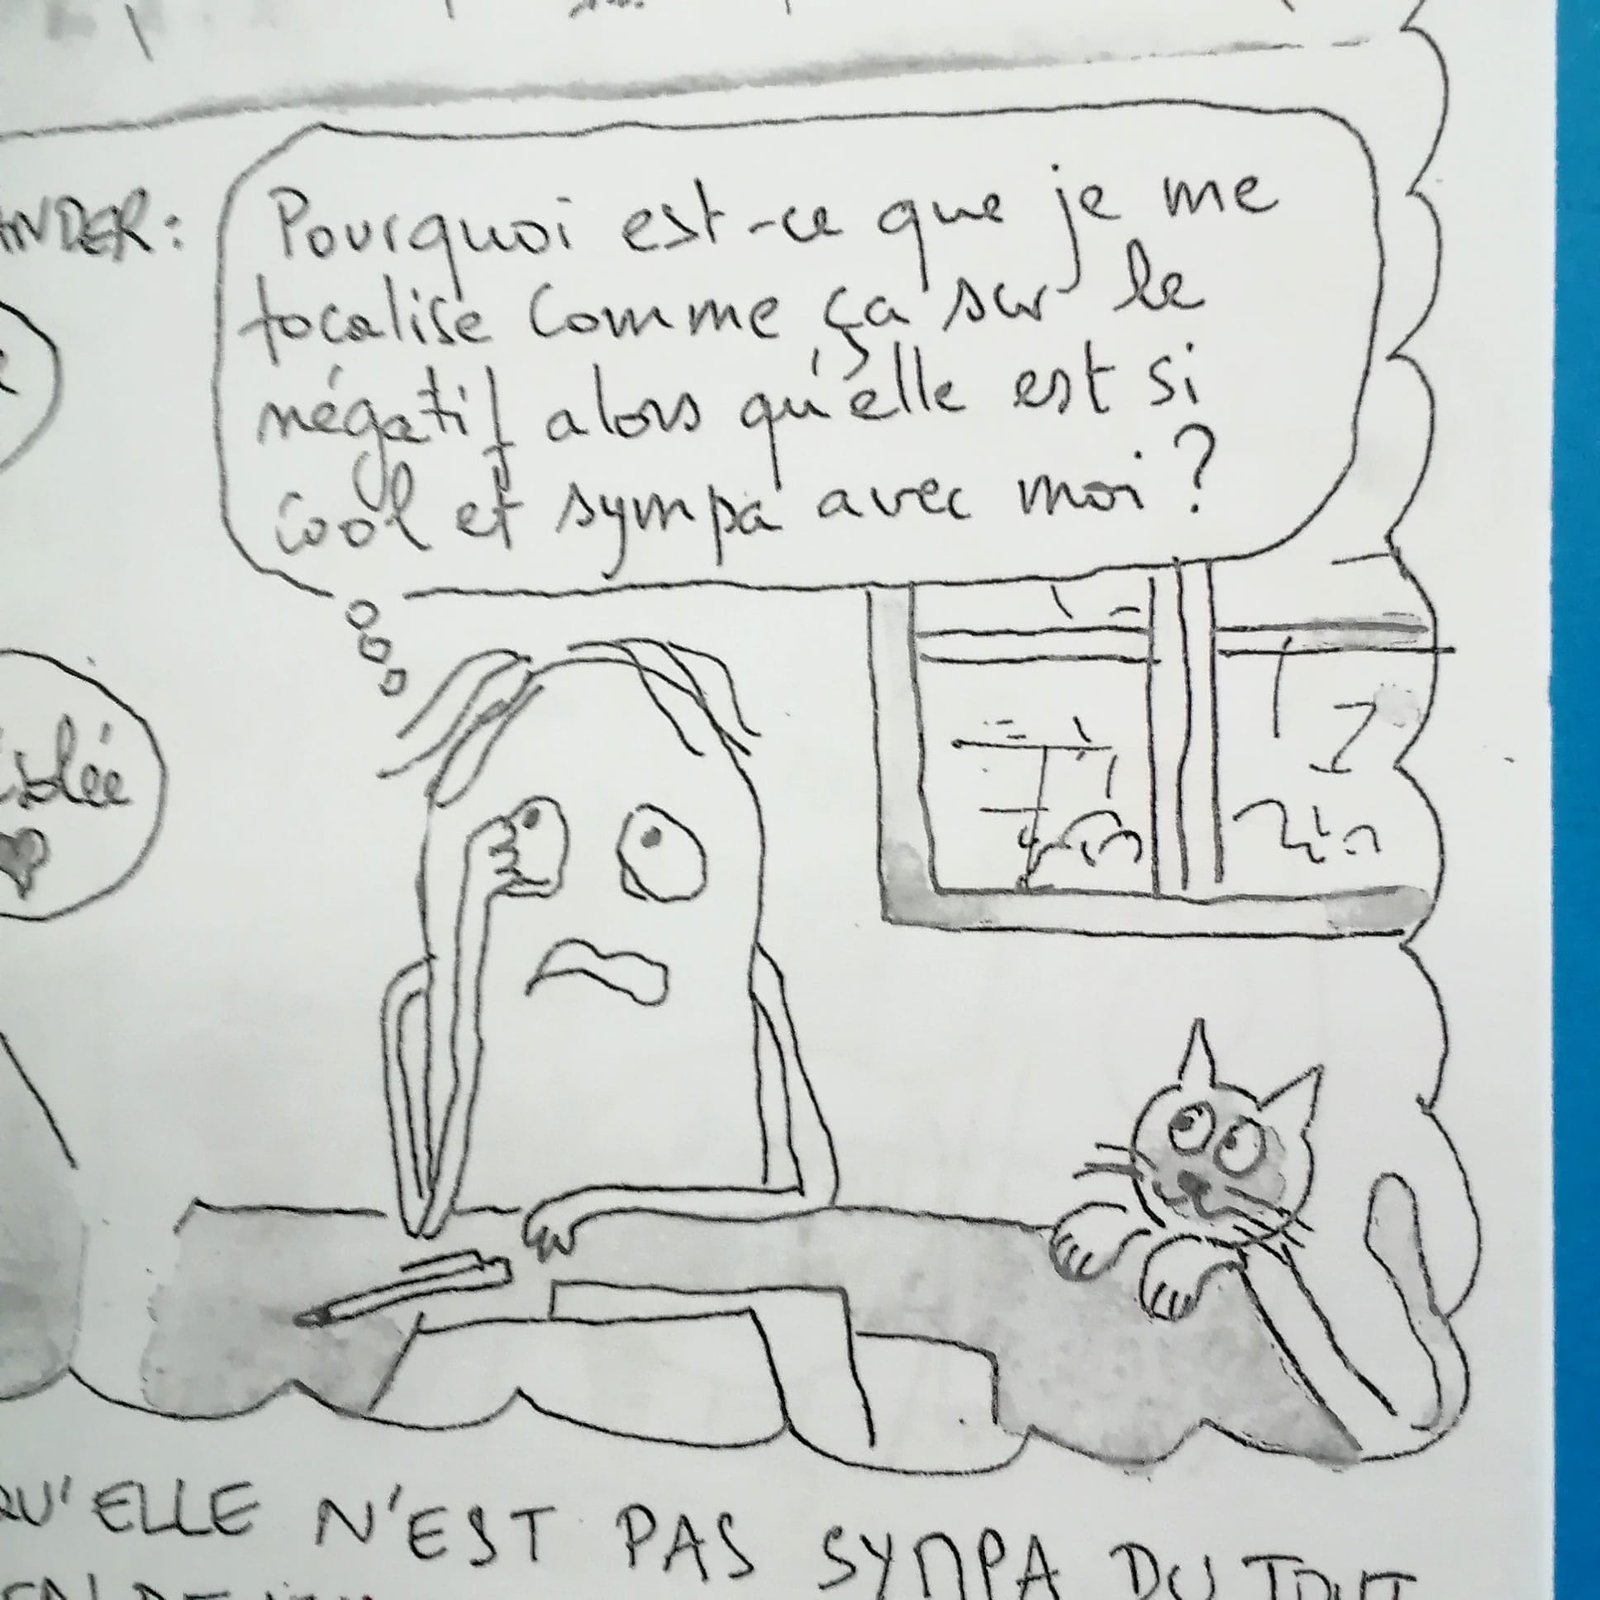 ANDER:
Pourquoi est-ce que je me
focalise comme ça sur le
négatif alors qu'elle est si
cool et sympa avec moi?
QU'ELLE N'EST PAS SYMPA DU TOUT